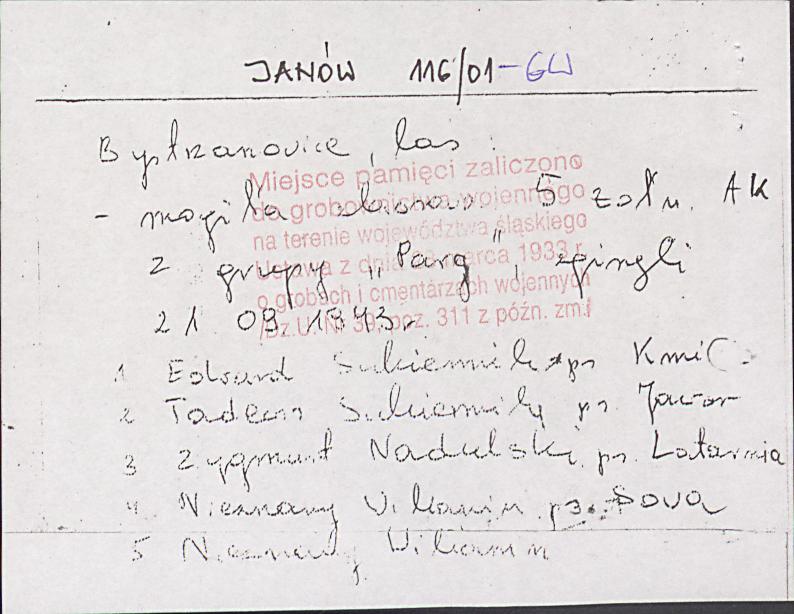 JANÓW 116/01-GW
Bystrzanowice, las :
Miejsce pamięci zaliczone
do grobownictwa wojennego
na terenie województwa śląskiego
Ustawa z dnia 28 marca 1933 r.
o grobach i cmentarzach wojennych
/Dz.U. Nr 39, poz. 311 z późn. zm./
- mogiła zbiorowa 5 żołn. AK
z grupy „Parg”, zginęli
21 09. 1943r.
1 Edward Sukiennik ps Kmic.
2 Tadeusz Sukiennik ps. Jawor
3 Zygmunt Nadulski, ps. Latarnia
4 Nieznany Ukrainin ps. Sowa
5 Nieznany